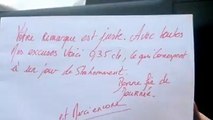 Votre remarque est juste. Avec toutes
Nos excuses Voici 0,35 cts, ce qui Correspond
à un jour de Stationnement
Bonne fin de
Journée.
et Merci encore